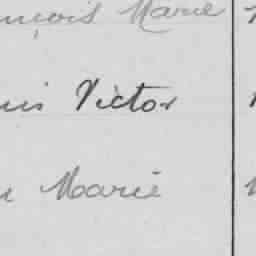 nçois Marie
uis Victor
Marie